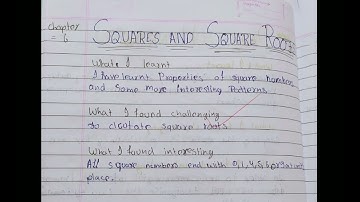 Chapter
= 6
SQUARES AND SQUARE ROOTS
What I learnt
I have learnt Properties of square numbers
and some more Interesting Patterns.
What I found challenging
to clculate square roots
What I found interesting
All square numbers end with 0, 1, 4, 5, 6, or 9 at unit
place.